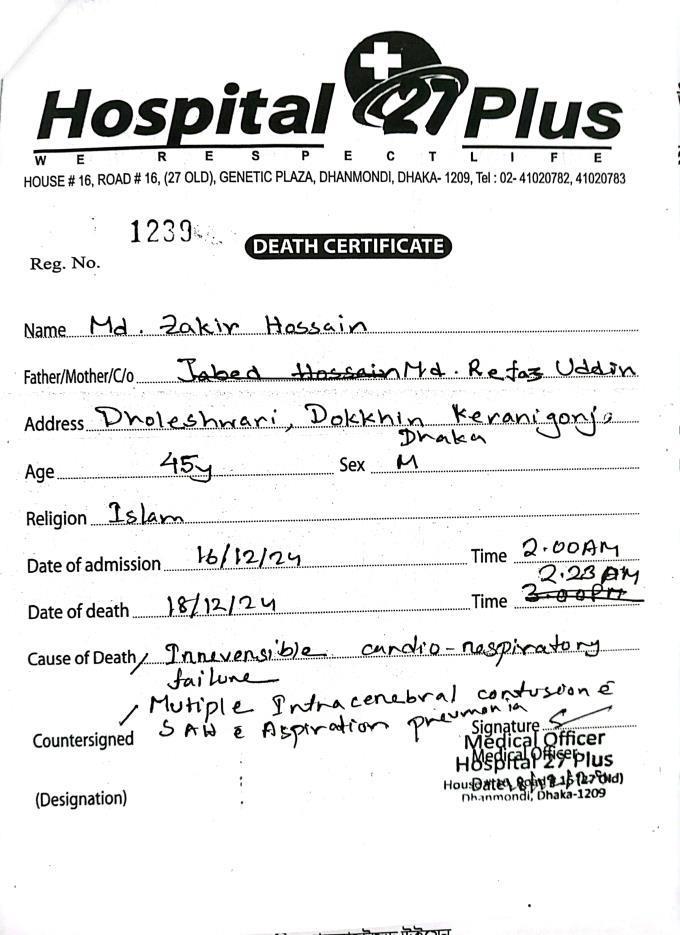 Hospital 27 Plus
WE RESPECT LIFE
HOUSE # 16, ROAD # 16, (27 OLD), GENETIC PLAZA, DHANMONDI, DHAKA- 1209, Tel : 02- 41020782, 41020783
Reg. No. 1239
DEATH CERTIFICATE
Name Md. Zakir Hossain
Father/Mother/C/o Jabed Hossain Md. Refaz Uddin
Address Dholeshwari, Dokkhin Keranigonj,
Dhaka
Age 45y Sex M
Religion Islam
Date of admission 16/12/24 Time 2.00AM
2.23 PM
Date of death 18/12/24 Time 3.00Pm
Cause of Death Irreversible cardio-respiratory
failure
Mutiple Intracerebral contusion c̄
SAH c̄ Aspiration pneumonia
Countersigned Signature
Medical Officer
Medical Officer
Hospital 27 Plus
Date
(27 Old)
(Designation) Dhanmondi, Dhaka-1209